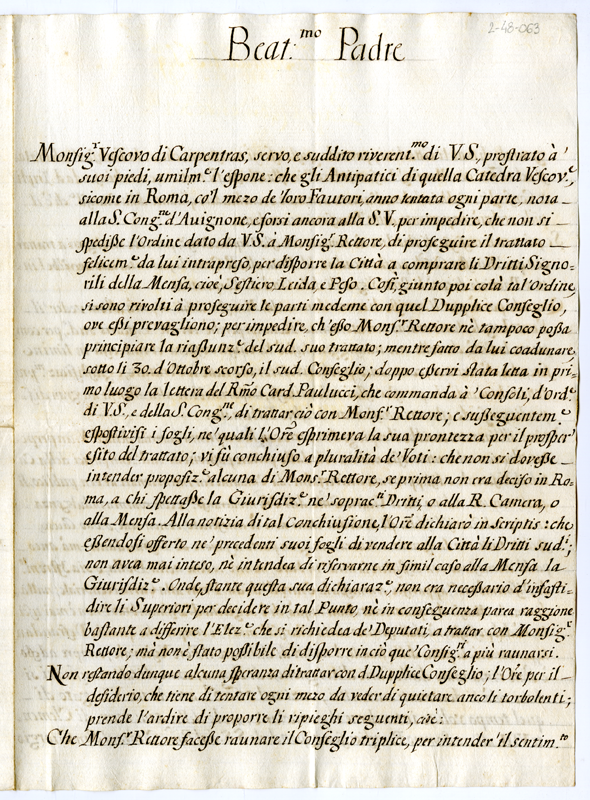 2-48-063
Beat.mo Padre
Monsig.r Vescovo di Carpentras, servo, e suddito riverent.mo di V.S., prostrato à
suoi piedi, umilm.e l'espone: che gli Antipatici di quella Catedra Vescov.e,
sicome in Roma, co'l mezo de' loro Fautori, anno tentata ogni parte, nota
alla S. Cong.ne d'Auignone, e forsi ancora alla S.V. per impedire, che non si
spedisse l'Ordine dato da V.S. à Monsig.r Rettore, di proseguire il trattato
felicem.e da lui intrapreso, per disporre la Città a comprare li Dritti Signo=
rili della Mensa, cioè, Sestiero Leida e Peso. Così, giunto poi colà tal'Ordine,
si sono rivolti à proseguire le parti medeme con quel Dupplice Conseglio,
ove essi prevagliono; per impedire, ch'esso Mons.r Rettore nè tampoco possa
principiare la riassunz.e del sud. suo trattato; mentre fatto da lui coadunare,
sotto li 30. d'Ottobre scorso, il sud. Conseglio; doppo esservi stata letta in pri=
mo luogo la lettera del R.mo Card. Paulucci, che commanda à Consoli, d'Ord.e
di V.S., e della S. Cong.ne, di trattar ciò con Mons.r Rettore; e susseguentem.e
espostivisi i fogli, ne' quali l'Ore esprimeva la sua prontezza per il prosper'
esito del trattato; vi fù conchiuso a pluralità de' Voti: che non si dovesse
intender proposiz.e alcuna di Mons.r Rettore, se prima non era deciso in Ro=
ma, a chi spettasse la Giurisdiz.e ne' soprac.ti Dritti, o alla R. Camera, o
alla Mensa. Alla notizia di tal Conchiusione, l'Ore dichiarò in scriptis: che
essendosi offerto ne' precedenti suoi fogli di vendere alla Città li Dritti sud.i;
non avea mai inteso, nè intendea di riservarne in simil caso alla Mensa la
Giurisdiz.e. Onde, stante questa sua dichiaraz.e, non era necessario d'infasti=
dire li Superiori per decidere in tal Punto, nè in conseguenza parea raggione
bastante a differire l'Elez.e che si richiedea de' Deputati, a trattar con Monsig.r
Rettore; mà non è stato possibile di disporre in ciò que' Consig.ri a più raunarsi.
Non restando dunque alcuna speranza di trattar con d. Dupplice Conseglio; l'Ore per il
desiderio, che tiene di tentare ogni mezo da veder di quietare anco li torbolenti;
prende l'ardire di proporre li ripieghi seguenti, cioè:
Che Mons.r Rettore facesse raunare il Conseglio triplice, per intender' il sentim.to